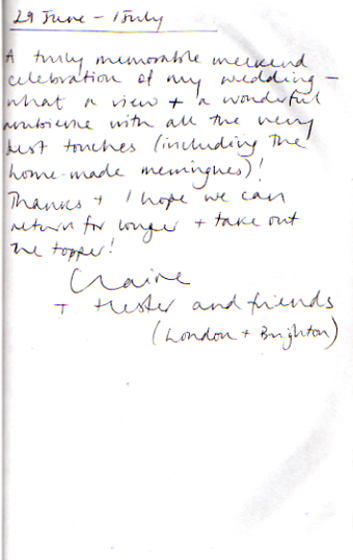 29 June – 1 July
A truly memorable weekend
celebration of my wedding –
what a view + a wonderful
ambience with all the very
best touches (including the
home-made meringues)!
Thanks + I hope we can
return for longer + take out
the topper!
Claire
+ Hester and friends
(London + Brighton)